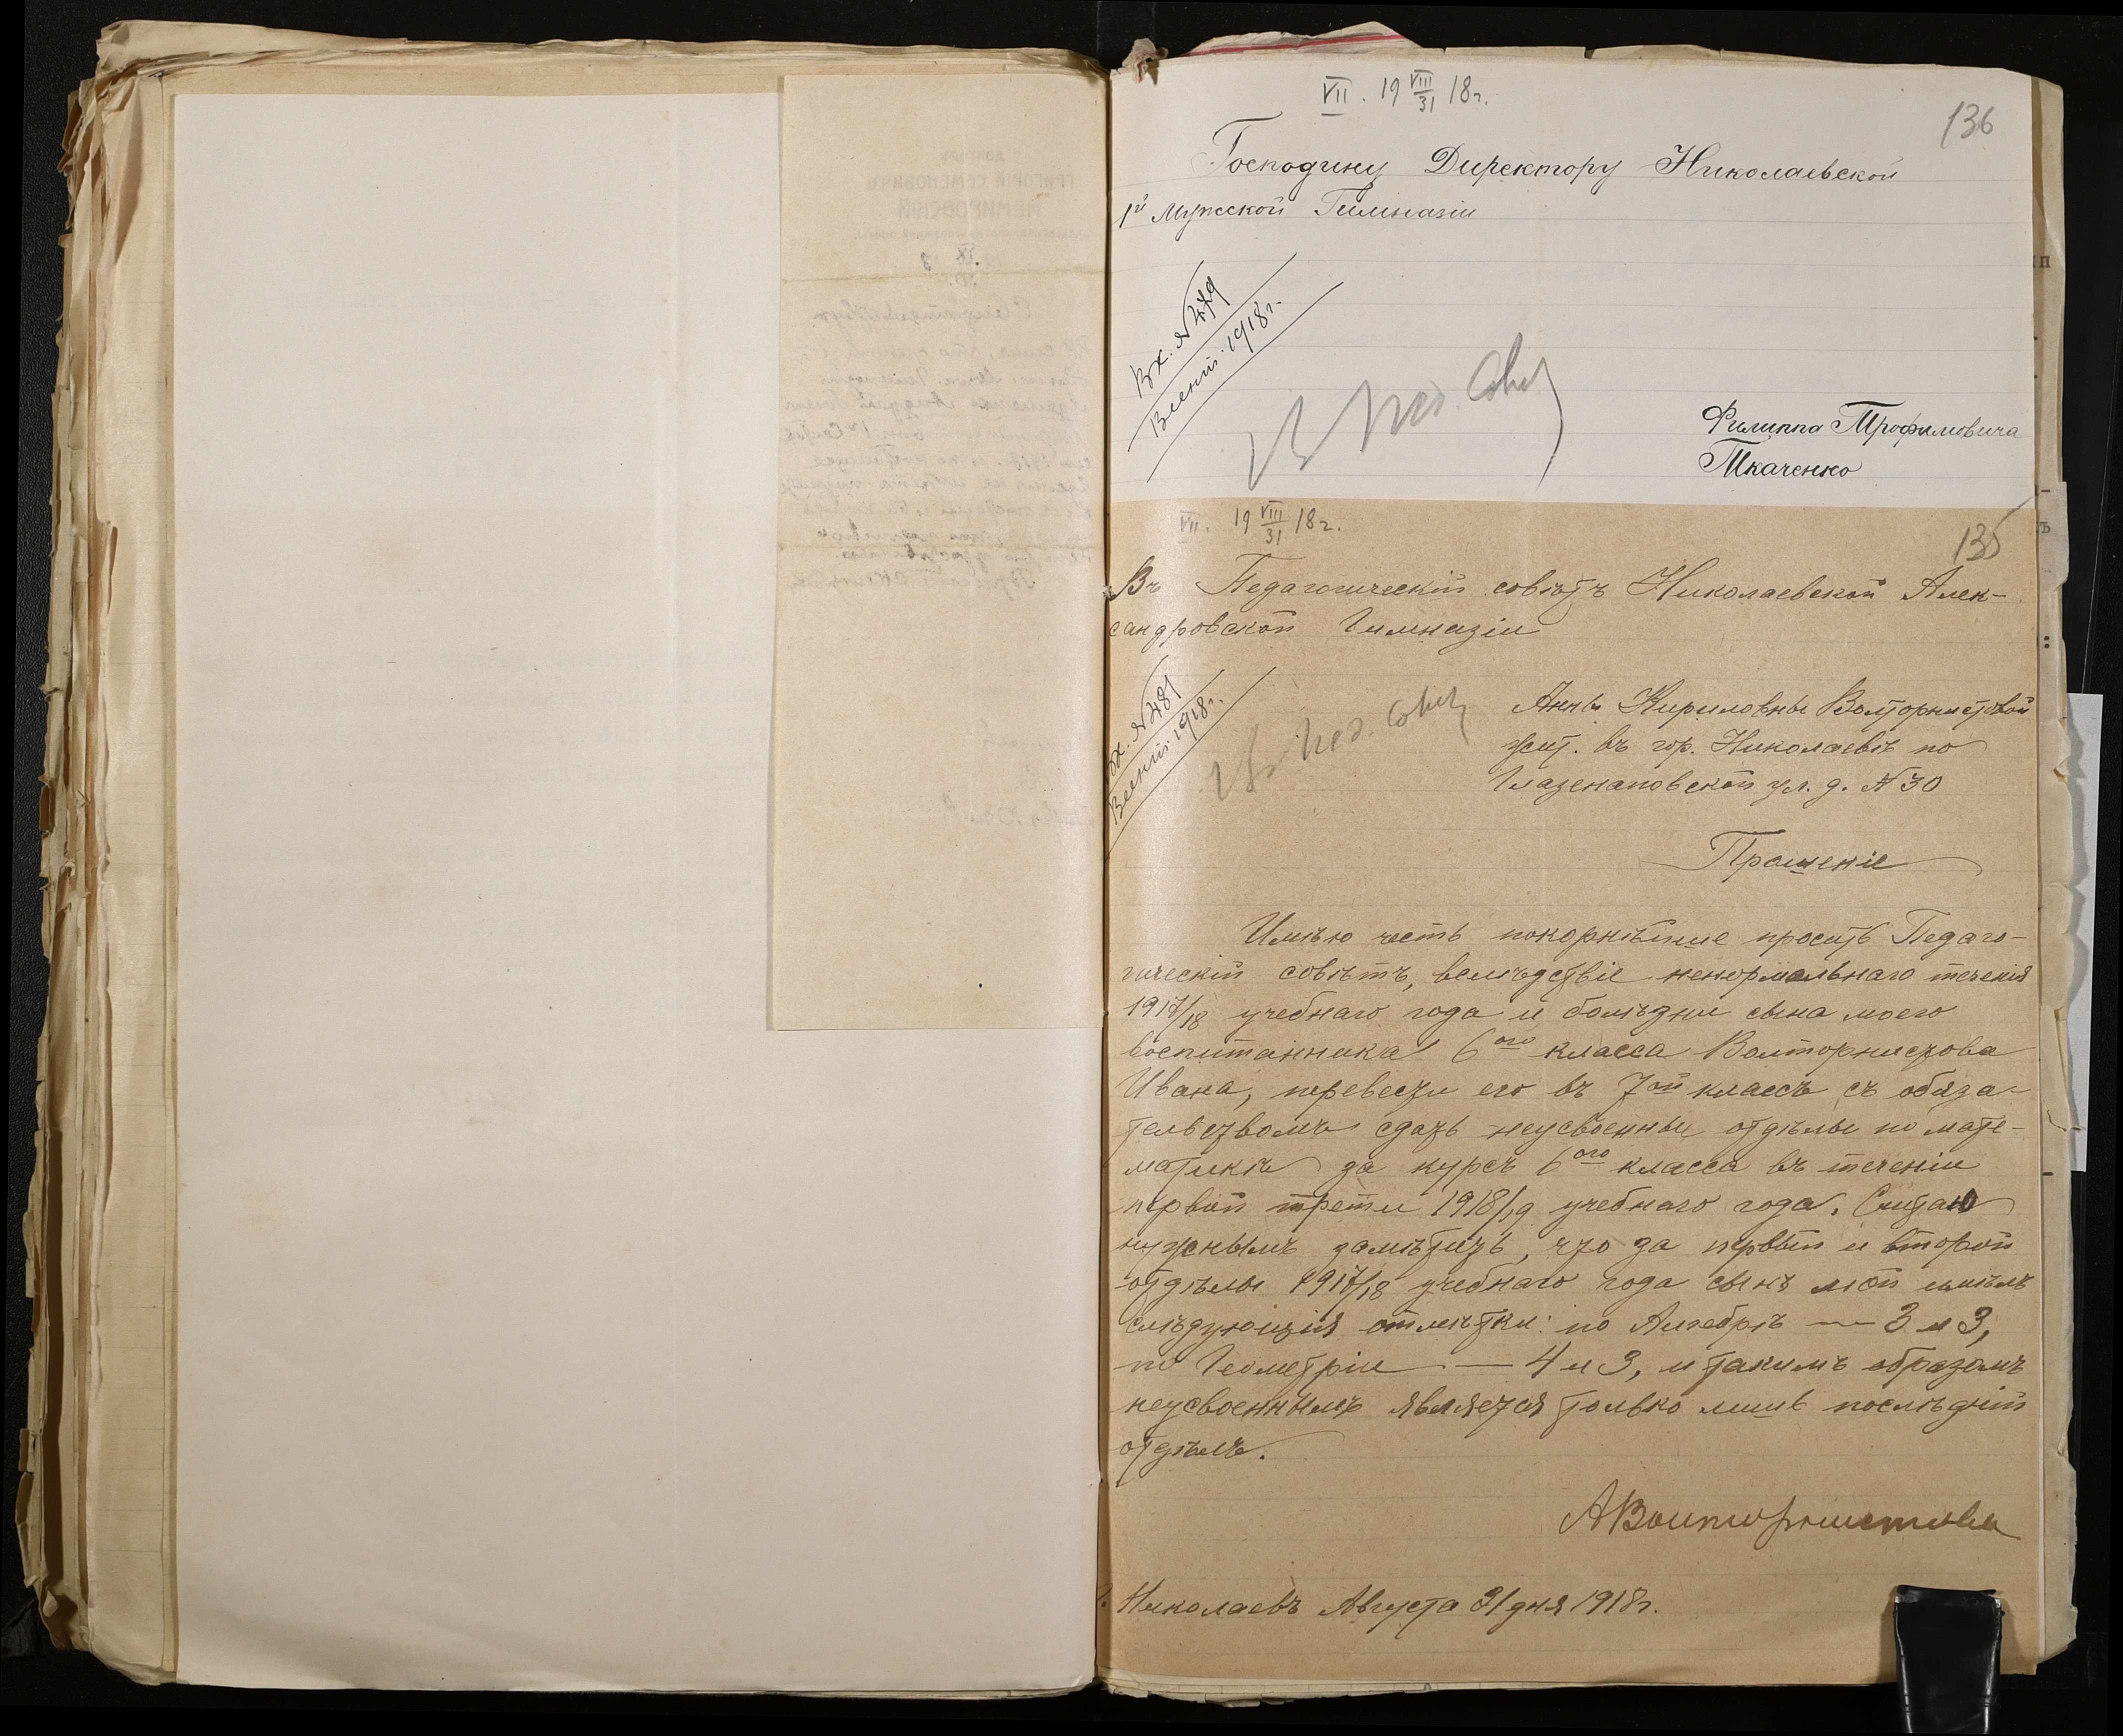 VII. 19 VIII/31 18 г.
136
Господину Директору Николаевской
1й Мужской Гимназіи
Вх. № 479
В осеній. 1918 г.
Въ Пед. Совѣт
Филиппа Трофимовича
Ткаченко
VII. 19 VIII/31 18 г.
135
Въ Педагогическій совѣтъ Николаевской Алек-
сандровской Гимназіи
Вх. № 481
1918 г.
Въ Пед. Совѣт
Анны Кириловны Волторнистовой
жит. въ гор. Николаевѣ по
Глазенаповской ул. д. № 30
Прошеніе
Имѣю честь покорнѣйше просить Педаго-
гическій совѣтъ, вслѣдствіе ненормальнаго теченія
1917/18 учебнаго года и болѣзни сына моего
воспитанника 6ого класса Волторнистова
Ивана, перевести его въ 7ой классъ съ обяза-
тельствомъ сдать неусвоенные отдѣлы по мате-
матикѣ за курсъ 6ого класса въ теченіи
первой трети 1918/19 учебнаго года. Считаю
нужнымъ замѣтить, что за первый и второй
отдѣлы 1917/18 учебнаго года сынъ мой имѣлъ
слѣдующія отмѣтки: по Алгебрѣ — 3 и 3,
по Геометріи — 4 и 3, и такимъ образомъ
неусвоеннымъ является только лишь послѣдній
отдѣлъ.
А Волторнистова
Николаевъ Августа 31 дня 1918 г.